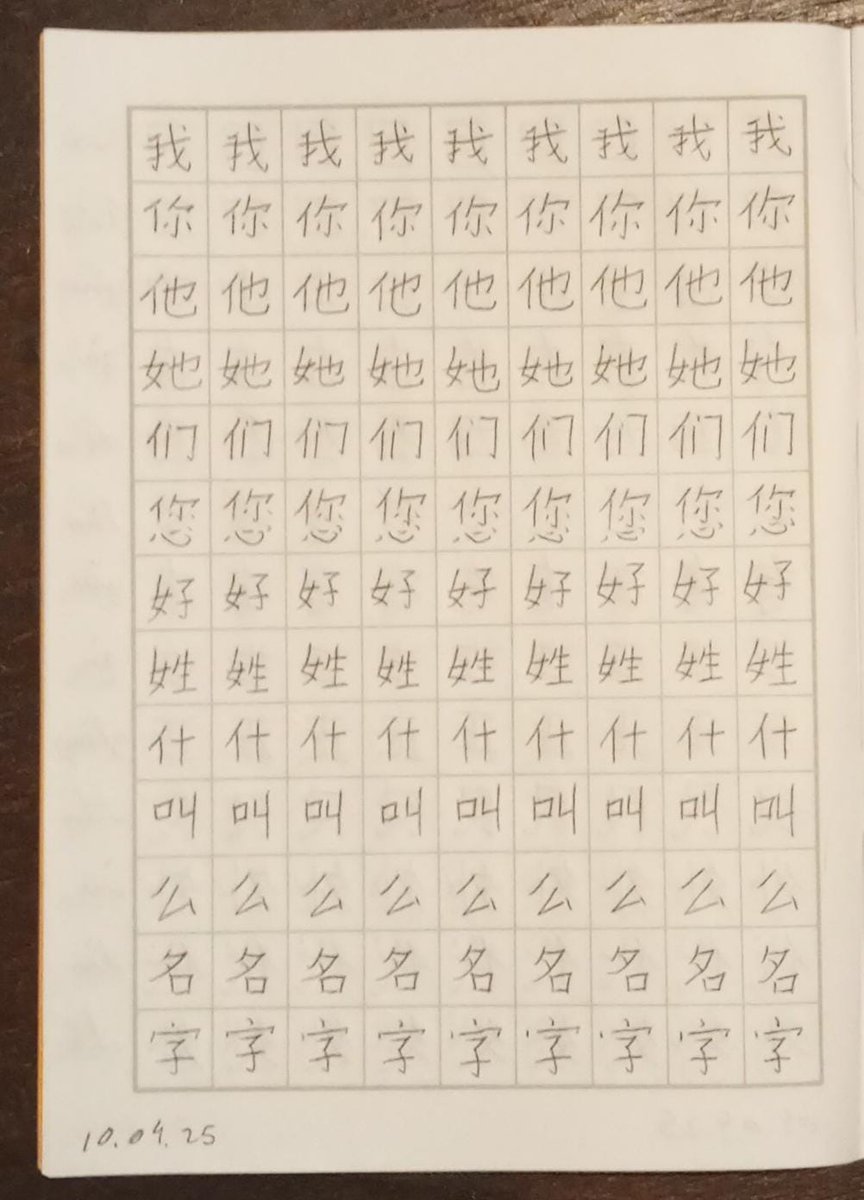 我我我我我我我我我
你你你你你你你你你
他他他他他他他他他
她她她她她她她她她
们们们们们们们们们
您您您您您您您您您
好好好好好好好好好
姓姓姓姓姓姓姓姓姓
什什什什什什什什什
叫叫叫叫叫叫叫叫叫
么么么么么么么么么
名名名名名名名名名
字字字字字字字字字
10.04.25